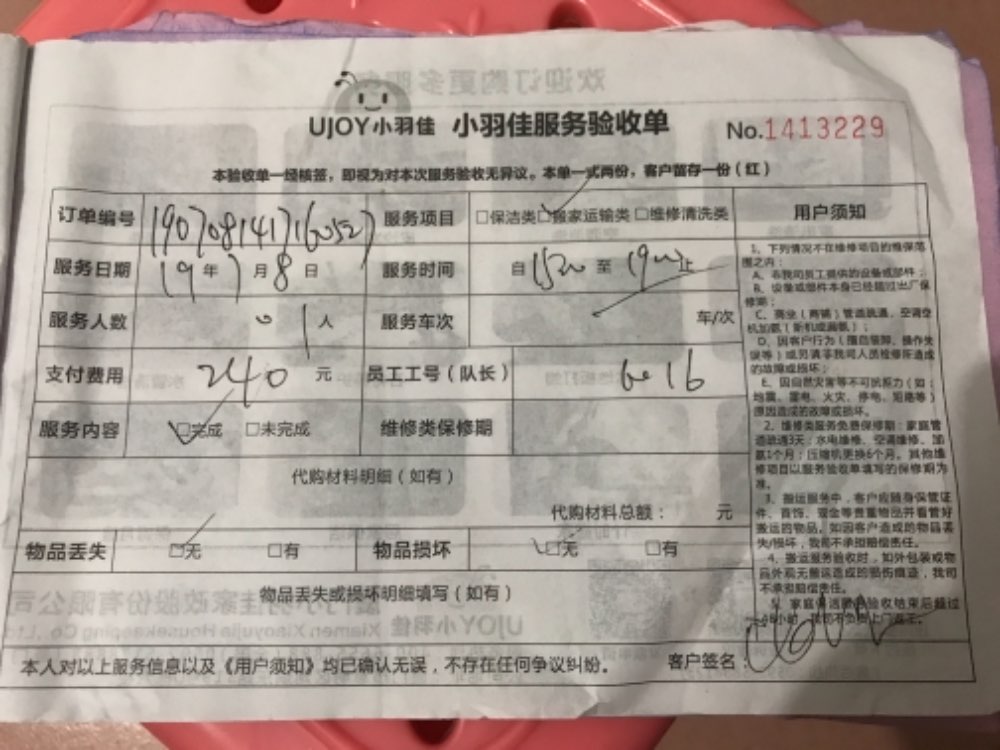 UJOY小羽佳 小羽佳服务验收单 No.1413229
本验收单一经核签，即视为对本次服务验收无异议。本单一式两份，客户留存一份（红）
订单编号 服务项目 □保洁类 □搬家运输类 □维修清洗类 用户须知
服务日期 19年7月8日 服务时间 自 至 止
服务人数 01人 服务车次 车/次
支付费用 240元 员工工号（队长） 6016
服务内容 □完成 □未完成 维修类保修期
代购材料明细（如有）
代购材料总额： 元
物品丢失 □无 □有 物品损坏 □无 □有
物品丢失或损坏明细填写（如有）
本人对以上服务信息以及《用户须知》均已确认无误，不存在任何争议纠纷。 客户签名：
1、下列情况不在维修项目的维保范
围之内：
A、非我司员工提供的设备或部件；
B、设备或部件本身已经超过出厂保
修期；
C、商业（商铺）管道疏通、空调空
机加氨（新机或漏氨）；
D、因客户行为（擅自装卸、操作失
误等）或另请非我司人员检修所造成
的故障或损坏；
E、因自然灾害等不可抗拒力（如：
地震、雷电、火灾、停电、短路等）
原因造成的故障或损坏。
2、维修类服务免费保修期：家庭管
道疏通3天；水电维修、空调维修、加
氨1个月；压缩机更换6个月。其他维
修项目以服务验收单填写的保修期为
准。
3、搬运服务中，客户应随身保管证
件、首饰、现金等贵重物品并看管好
搬运的物品。如因客户造成的物品丢
失/损坏，我司不承担赔偿责任。
4、搬运服务验收时，如外包装或物
品外观无搬运造成的损伤痕迹，我司
不承担赔偿责任。
5、家庭保洁服务验收结束后超过